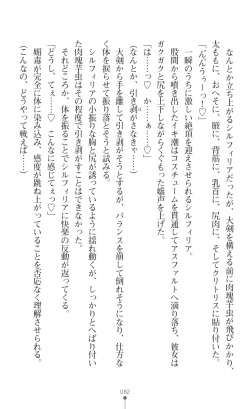 なんとか立ち上がるシルフィリアだったが、大剣を構える前に肉塊芋虫が飛びかかり、
太ももに、おへそに、腋に、背筋に、乳首に、尻肉に、そしてクリトリスに貼り付いた。
「んんだぅぅーっ！♡」
一瞬のうちに激しい絶頂を迎えさせられるシルフィリア。
股間から噴き出したイキ潮はコスチュームを貫通してアスファルトへ滴り落ち、彼女は
ガクガクと足を震わせながらくぐもった嬌声を上げた。
「は……っ♡　か……ぁ……♡」
（なんとか、引き剥がさなきゃ……）
大剣から手を離して引き剥がそうとするが、バランスを崩して倒れそうになり、仕方な
く体を振って振り落とそうと試みる。
シルフィリアの小振りな胸と尻が誘っているように揺れ動くが、しっかりとへばり付い
た肉塊芋虫を引き剥がすことはできなかった。
それどころか、体を振ることでシルフィリアに快楽の反動が返ってくる。
（どうし、てぇ……♡　こんなに感じてぇっ♡）
媚毒が完全に体に染み込み、感度が跳ね上がっていることを否応なく理解させられる。
（こんなの、どうやって戦えば……）
082